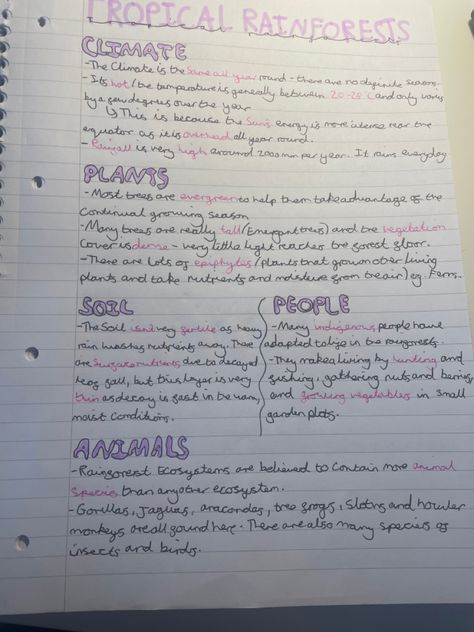 TROPICAL RAINFORESTS
CLIMATE
- The Climate is the same all year round - there are no definite seasons.
- Its hot (the temperature is generally between 20-28°C and only varies
by a few degrees over the year
↳ This is because the Sun's energy is more intense near the
equator as it is overhead all year round.
- Rainfall is very high around 2000mm per year. It rains everyday
PLANTS
- Most trees are evergreen to help them take advantage of the
continual growing season
- Many trees are really tall (Emergent trees) and the vegetation
cover is dense - very little light reaches the forest floor.
- There are lots of epiphytes (plants that grow on other living
plants and take nutrients and moisture from the air) eg Ferns.
SOIL
- The Soil isn't very fertile as heavy
rain washes nutrients away. There
are surface nutrients due to decayed
leaf fall, but this layer is very
thin as decay is fast in the warm,
moist conditions.
PEOPLE
- Many indigenous people have
adapted to life in the rainforests.
- They make a living by hunting and
fishing, gathering nuts and berries,
and growing vegetables in small
garden plots.
ANIMALS
- Rainforest Ecosystems are believed to contain more animal
species than any other ecosystem.
- Gorillas, jaguars, anacondas, tree frogs, sloths and howler
monkeys are all found here. There are also many species of
insects and birds.